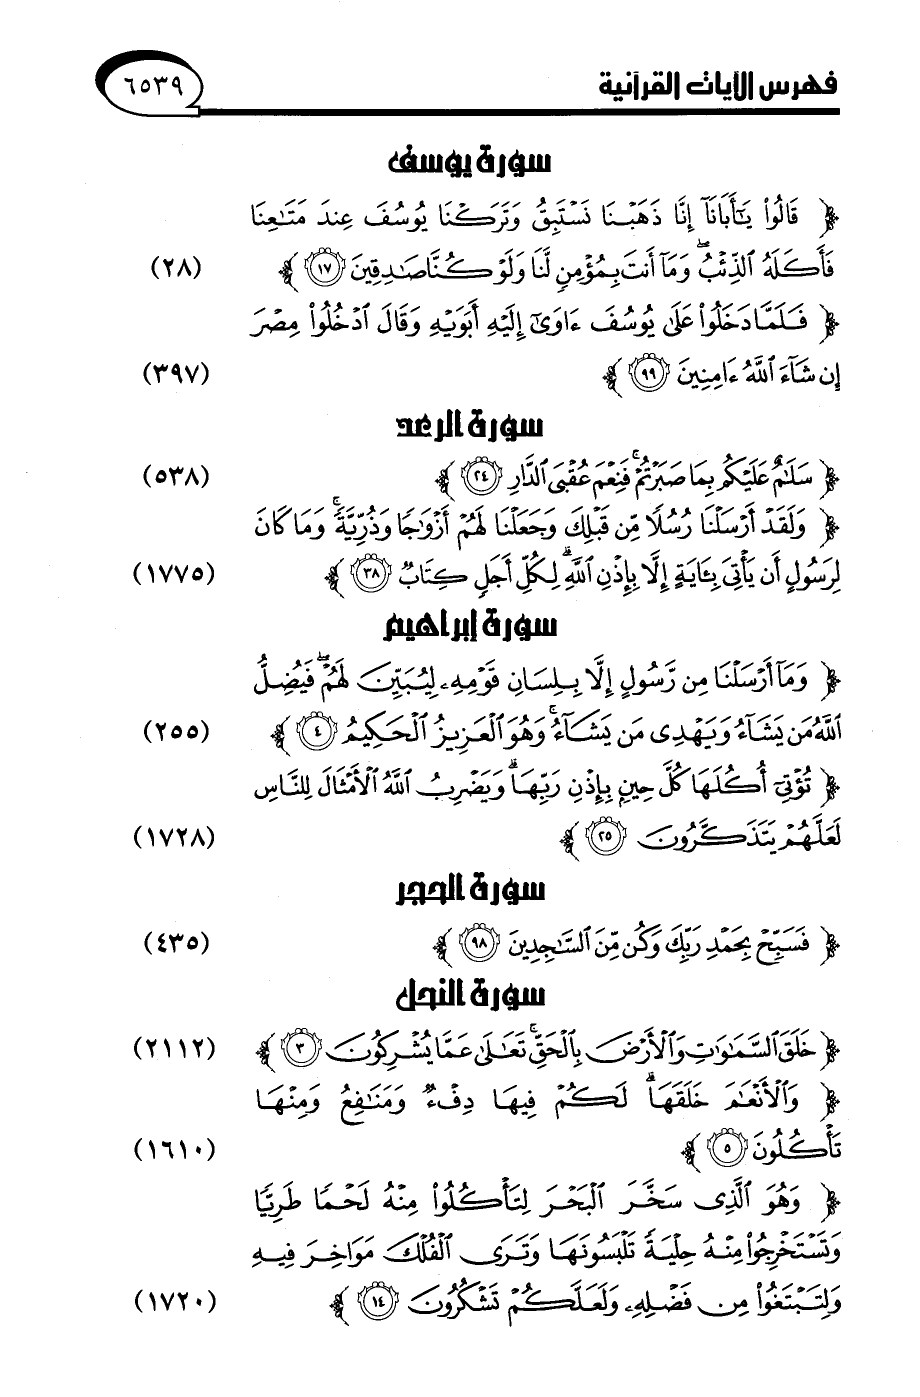 فهرس الآيات القرآنية ٦٥٣٩
سورة يوسف
﴿ قَالُوا۟ يَـٰٓأَبَانَآ إِنَّا ذَهَبْنَا نَسْتَبِقُ وَتَرَكْنَا يُوسُفَ عِندَ مَتَـٰعِنَا
فَأَكَلَهُ ٱلذِّئْبُ ۖ وَمَآ أَنتَ بِمُؤْمِنٍ لَّنَا وَلَوْ كُنَّا صَـٰدِقِينَ ١٧ ﴾ (٢٨)
﴿ فَلَمَّا دَخَلُوا۟ عَلَىٰ يُوسُفَ ءَاوَىٰٓ إِلَيْهِ أَبَوَيْهِ وَقَالَ ٱدْخُلُوا۟ مِصْرَ
إِن شَآءَ ٱللَّهُ ءَامِنِينَ ٩٩ ﴾ (٣٩٧)
سورة الرعد
﴿ سَلَـٰمٌ عَلَيْكُم بِمَا صَبَرْتُمْ ۚ فَنِعْمَ عُقْبَى ٱلدَّارِ ٢٤ ﴾ (٥٣٨)
﴿ وَلَقَدْ أَرْسَلْنَا رُسُلًا مِّن قَبْلِكَ وَجَعَلْنَا لَهُمْ أَزْوَٰجًا وَذُرِّيَّةً ۚ وَمَا كَانَ
لِرَسُولٍ أَن يَأْتِىَ بِـَٔايَةٍ إِلَّا بِإِذْنِ ٱللَّهِ ۗ لِكُلِّ أَجَلٍ كِتَابٌ ٣٨ ﴾ (١٧٧٥)
سورة إبراهيم
﴿ وَمَآ أَرْسَلْنَا مِن رَّسُولٍ إِلَّا بِلِسَانِ قَوْمِهِۦ لِيُبَيِّنَ لَهُمْ ۖ فَيُضِلُّ
ٱللَّهُ مَن يَشَآءُ وَيَهْدِى مَن يَشَآءُ ۚ وَهُوَ ٱلْعَزِيزُ ٱلْحَكِيمُ ٤ ﴾ (٢٥٥)
﴿ تُؤْتِىٓ أُكُلَهَا كُلَّ حِينٍۭ بِإِذْنِ رَبِّهَا ۗ وَيَضْرِبُ ٱللَّهُ ٱلْأَمْثَالَ لِلنَّاسِ
لَعَلَّهُمْ يَتَذَكَّرُونَ ٢٥ ﴾ (١٧٢٨)
سورة الحجر
﴿ فَسَبِّحْ بِحَمْدِ رَبِّكَ وَكُن مِّنَ ٱلسَّـٰجِدِينَ ٩٨ ﴾ (٤٣٥)
سورة النحل
﴿ خَلَقَ ٱلسَّمَـٰوَٰتِ وَٱلْأَرْضَ بِٱلْحَقِّ ۚ تَعَـٰلَىٰ عَمَّا يُشْرِكُونَ ٣ ﴾ (٢١١٢)
﴿ وَٱلْأَنْعَـٰمَ خَلَقَهَا ۗ لَكُمْ فِيهَا دِفْءٌ وَمَنَـٰفِعُ وَمِنْهَا
تَأْكُلُونَ ٥ ﴾ (١٦١٠)
﴿ وَهُوَ ٱلَّذِى سَخَّرَ ٱلْبَحْرَ لِتَأْكُلُوا۟ مِنْهُ لَحْمًا طَرِيًّا
وَتَسْتَخْرِجُوا۟ مِنْهُ حِلْيَةً تَلْبَسُونَهَا وَتَرَى ٱلْفُلْكَ مَوَاخِرَ فِيهِ
وَلِتَبْتَغُوا۟ مِن فَضْلِهِۦ وَلَعَلَّكُمْ تَشْكُرُونَ ١٤ ﴾ (١٧٢٠)